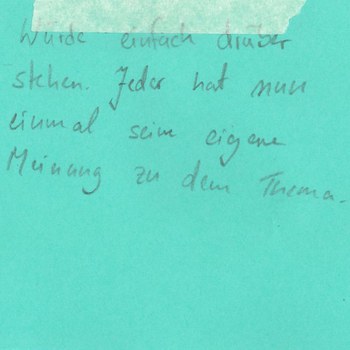 Würde einfach drüber
stehen. Jeder hat nun
einmal seine eigene
Meinung zu dem Thema.